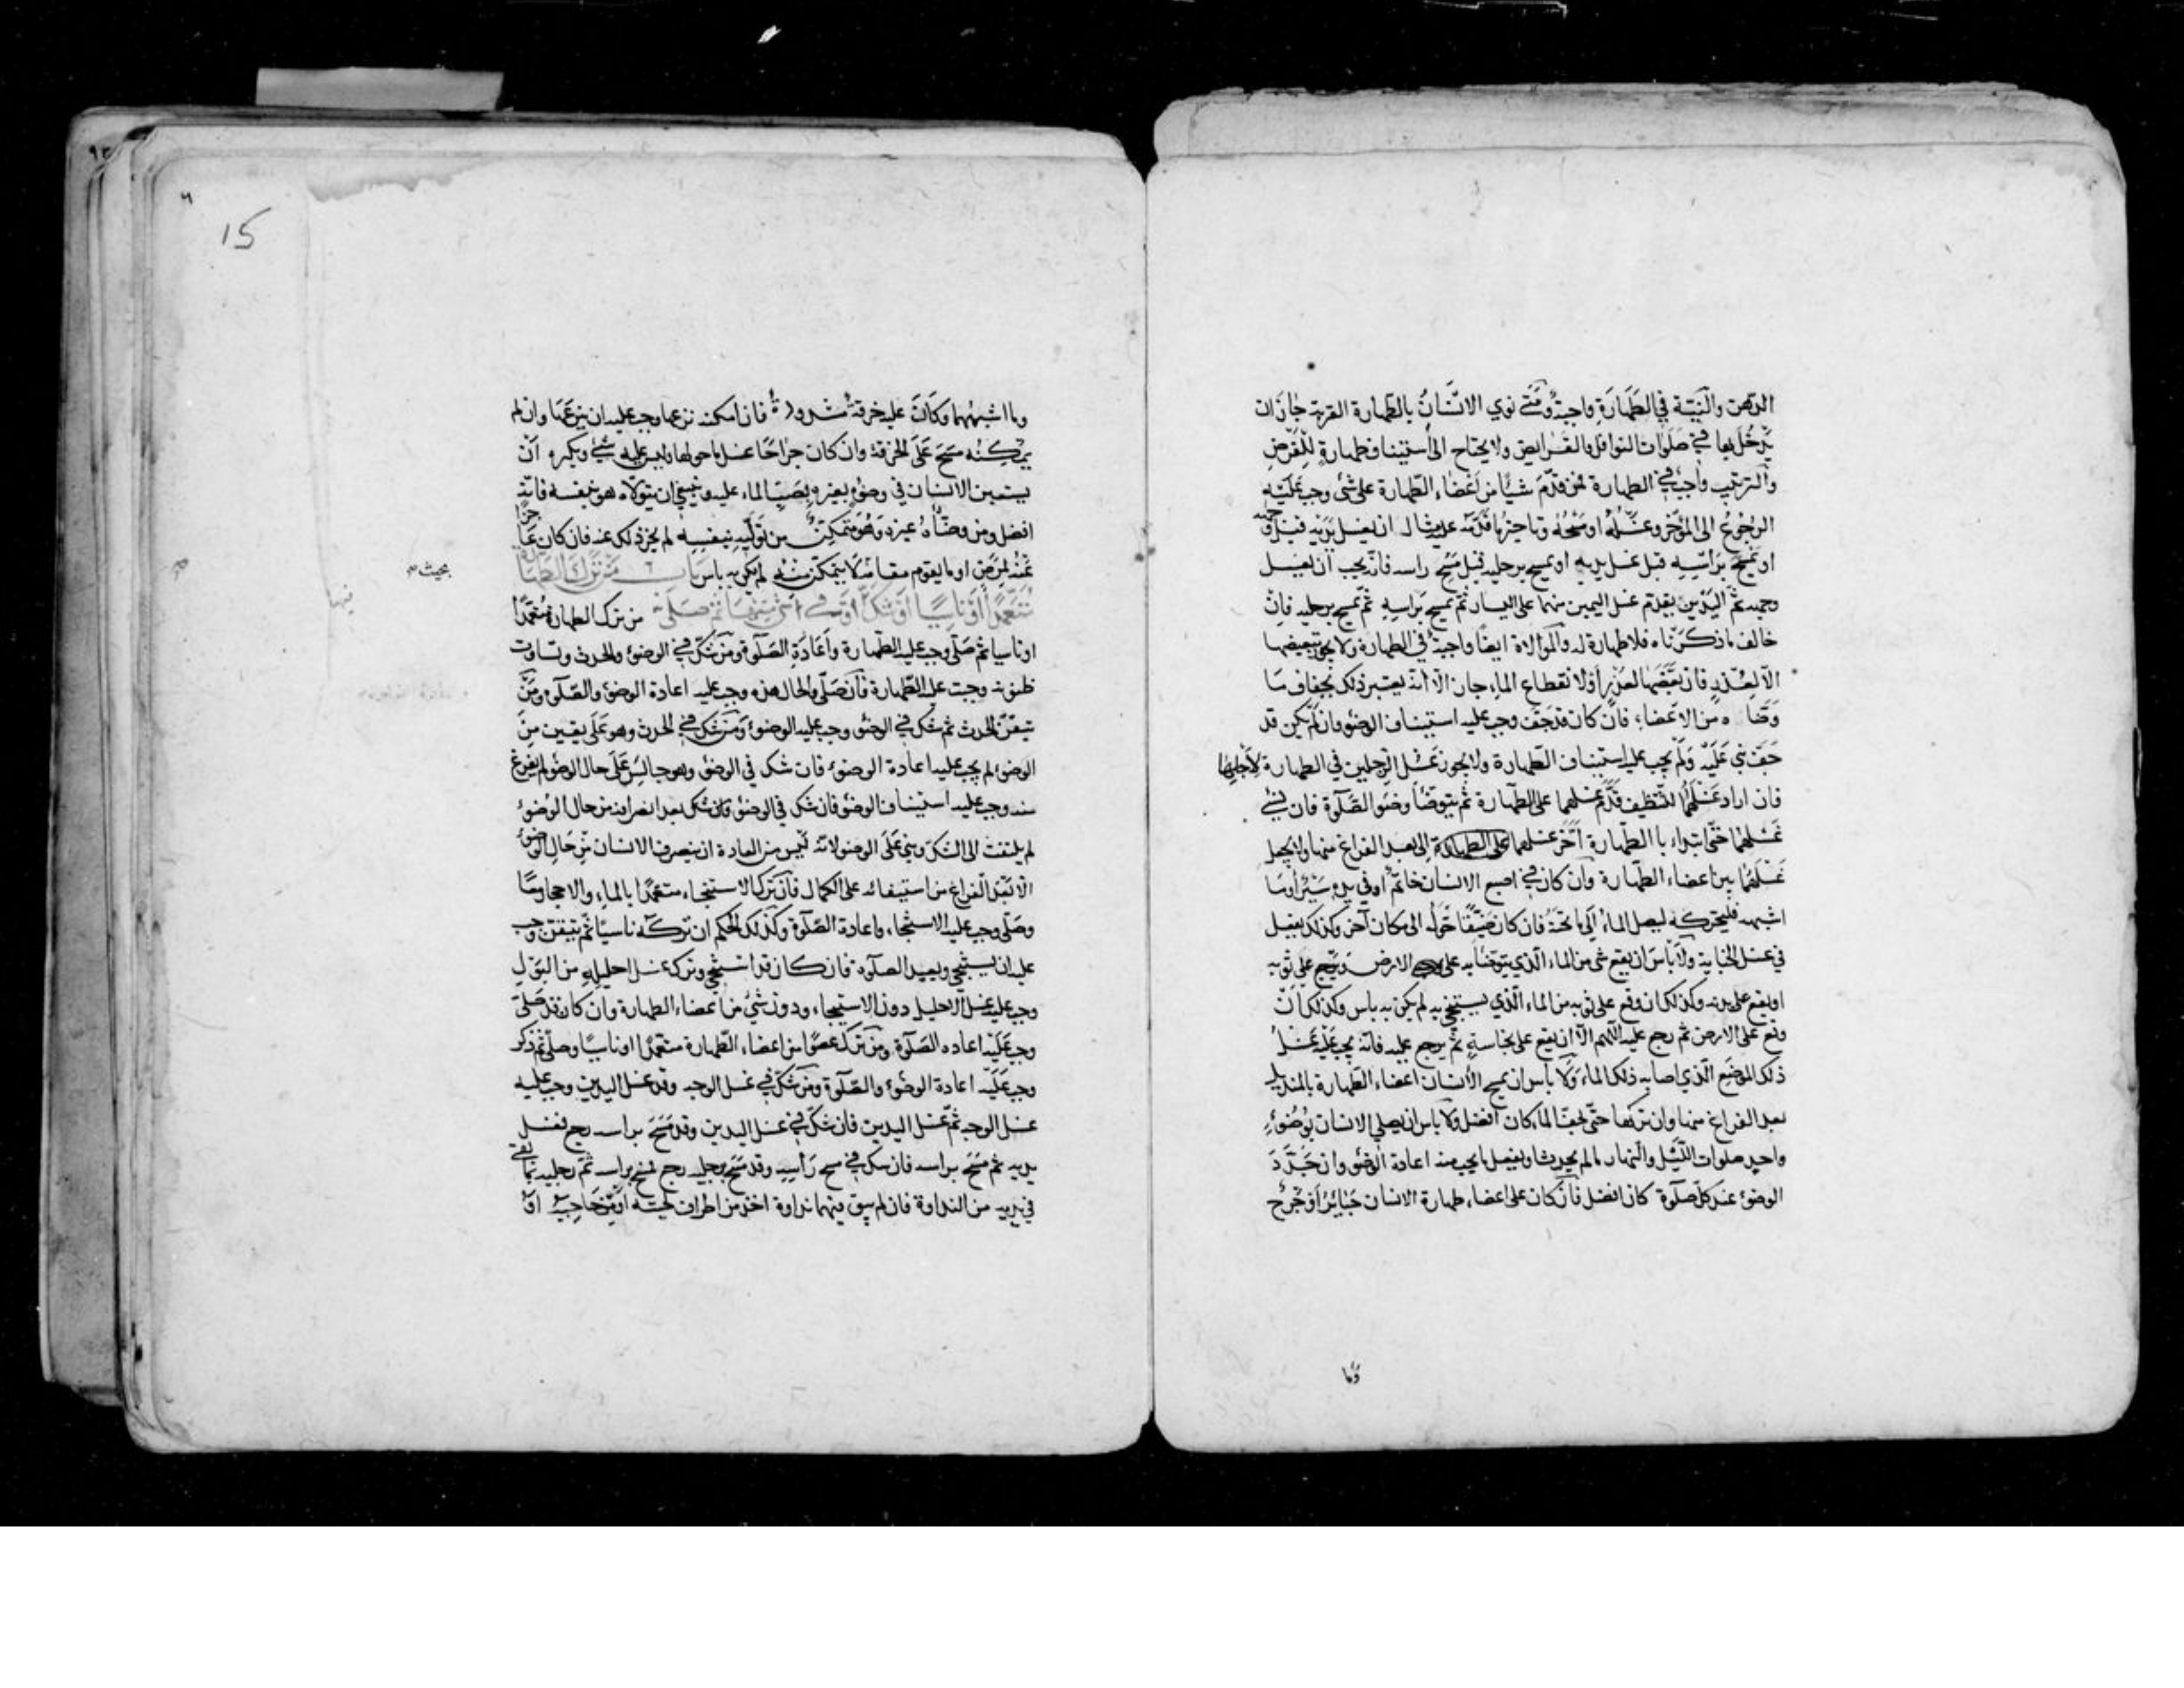 الدهن والنيّة في الطَّهَارَةِ واجبةٌ ومَتَى نوي الانسَانُ بالطّهارة القربة جازان
يَدْخُلَ بها في صَلَوات النوافل والفَرايض ولا يحتاج الى استيناف طهارةٍ للِفَرْضِ
والترتيب واجبٌ في الطهارة فمن قدّمَ شيئًا من اَعْضاء الطّهارة على شئ وجب عَلَيْهِ
الرجُوعُ الى المؤخّر وغَسْلُهُ او مَسْحُهُ وتاخيرُ ما قَدَّمَهُ مثال ان يغسل يَدَيْهِ قبل وجهه
او يَمْسَحَ بَراْسِهِ قبل غسل يديهِ او يمسح برجليه قبل مَسْحِ راسه فانّه يجب ان يغسل
وجهه ثمّ اليَدَيْنِ يقدّم غسل اليمين منهما على اليسار ثمّ يمسح بَراسِهِ ثمّ يمسح برجليه فاِنْ
خالف ماذكَرْناه فلا طهارة له والموالاة ايضًا واجبةٌ في الطهارة ولا يجوز تبعيضها
الّا لعُذرٍ فان بَعَّضَها لعذرٍ اَوْلا نقطاع الماء جاز الّا انّه يعتبر ذلك بجفاف مَا
وَضّاه من الاعْضاء فان كان قد جَفَّ وجب عليه استيناف الوضوُ وان لم يكن قد
جَفَّ بنى عَلَيْهِ وَلَمْ يجب عليه استيناف الطّهارة ولا يجوز غَسْل الرّجلين في الطهارة لاَجْلِها
فان اراد غَسْلَهُما للتنظيف قَدَّمَ غسلهما على الطّهارة ثم يتوضّأ وضوَ الصّلَوة فان نَسِيَ
غَسْلَهُما حتّى ابتداء با الطّهارة اَخّرَ غسلهما على الطهارة الى بعد الفراغ منها ولا يجعل
غَسْلَهُما بين اعضاء الطّهارة وان كان في اصبع الانسان خاتمٌ او في يده سَيْرٌ اَوما
اشبهه فليحرّكه ليصل الماءُ اِلى ماتحتَهُ فان كان ضَيّقًا حَوَّلَهُ الى مكان آخر وكذلك يفعل
في غسل الجنابة ولا بَاسَ ان يقع شئ من الماء الّذي يتوضّأ به على الارض ويرجع على ثوبه
او يقع على بدنه وكذلك ان وقع على ثوبه من الماء الّذي يستنجي به لم يكن به باس وكذلك اِنْ
وقع على الارض ثم رجع عليه اللّهم الّا ان يقع على نجاسةٍ ثمّ يرجع عليه فانّه يجب عَلَيْهِ غَسْلُ
ذلك الموْضَعِ الّذي اصابه ذلك الماء وَلَا باس ان يمسح الانسان اعضاء الطّهارة بالمنديل
بعد الفراغ منها وان تركها حتّى يجفّ الماء كان افضل وَلا باس ان يصلي الانسان بوُضُوءٍ
واحدٍ صلوات اللّيل والنّهار مالم يحدث او يفعل ما يجب منه اعادة الوضوُ وان جَدَّدَ
الوضوُء عند كلّ صلوة كان افضل فان كان على اعضاء طهارة الانسان جَبايُر اَو جُرحٌ
وما
15
وما اشبههما وكَاَنَ عليه خرقةٌ مشدودةٌ فان امكنه نزعها وجب عليه ان ينزعَها وان لم
يمكنْه مَسَحَ عَلَى الخرقة وان كان جراحًا غسل ماحولها وليس عليه شيٌ ويكره اَنْ
يستعين الانسان في وضوُئه بغيره بِصَبّ الماء عليه وينبغي ان يتولّاه هو بنفسه فانّه
افضل ومن وضَّأهُ غيره وَهُوَ متمكنٌ من تَولّيهِ بنفسِهِ لم يجز ذلك عنه فان كان عاجزًا
عَنْهُ لمرَضٍ او مايقوم مقامَهُ لَا يتمكّن منه لم يكن به باس باب من ترك الطهارة
بحيث
مُتَعَمِّدًا اَوْ نَاسِيًا اَو شَكَّ فيها ثم صَلّى من ترك الطهارة مُتَعَمّدًا
فيها
او ناسيا ثم صَلّى وجب عليه الطّهارة واَعَادَة الصّلَوة ومَنْ شَكَّ في الوضوء والحدث وتساوت
ظنونه وجبت عليه الطّهارة فان صَلّى والحال هذه وجب عليه اعادة الوضوء والصّلَوة ومَنْ
تيقّنَ الحدث ثم شك في الوضوُ وجب عليه الوضوُء ومَنْ شك في الحدث وهو عَلَى يقين مِنَ
الوضوُء لم يجب عليه اعادة الوضوُء فان شك في الوضوُ وهو جالسٌ عَلَى حال الوضوُ لم يفرغ
منه وجب عليه استيناف الوضوُ فان شك في الوضوُ فان شك بعد انصرافه من حال الوُضوُء
لم يلتفت الى الشّك وبنى عَلَى الوضوُ لانّه ليس من العادة ان ينصرف الانسان مِنْ حَالِ الوضوُء
الّا بَعْدَ الفراغ من استيفائه على الكمال فان تَرَكَ الاستنجاء متعمّدًا بالماء والاحجار معًا
وصَلّى وجب عليه الاستنجاء واعادة الصّلَوة وكذلك الحكم ان تركَهُ ناسيًا ثم تيقّن وجب
عليه ان يستنجي ويعيد الصلَوة فان كان قد استنجى وترك غسل احليله من البَوْلِ
وجب عليه غسل الاحليل دون الاستنجاء ودون شئٍ من اعضاء الطهارة وان كان قد صَلّى
وجب عَلَيْهِ اعاده الصّلَوة ومَنْ ترك عضوًا من اعضاء الطّهارة متعمّدًا اوناسيًا وصلّى ثم ذكر
وجب عَلَيْهِ اعادة الوضُوُء والصّلَوة ومَنْ شكّ في غسل الوجه وقد غسل اليدين وجب عليه
غسل الوجه ثمّ غسل اليدين فان شكّ في غسل اليدين وقد مَسَحَ براسه رجع فغسل
يديه ثم مَسَحَ براسه فان شك في مسح رَاْسِهِ وقد مَسَحَ برجليه رجع فمسح براسه ثمّ رجليه بما بَقي
في يديه من النداوة فان لم يبق فيهما نداوة اخذ من اطراف لحيته اَوْ مِنْ حَاجِبَيْهِ اَوْ